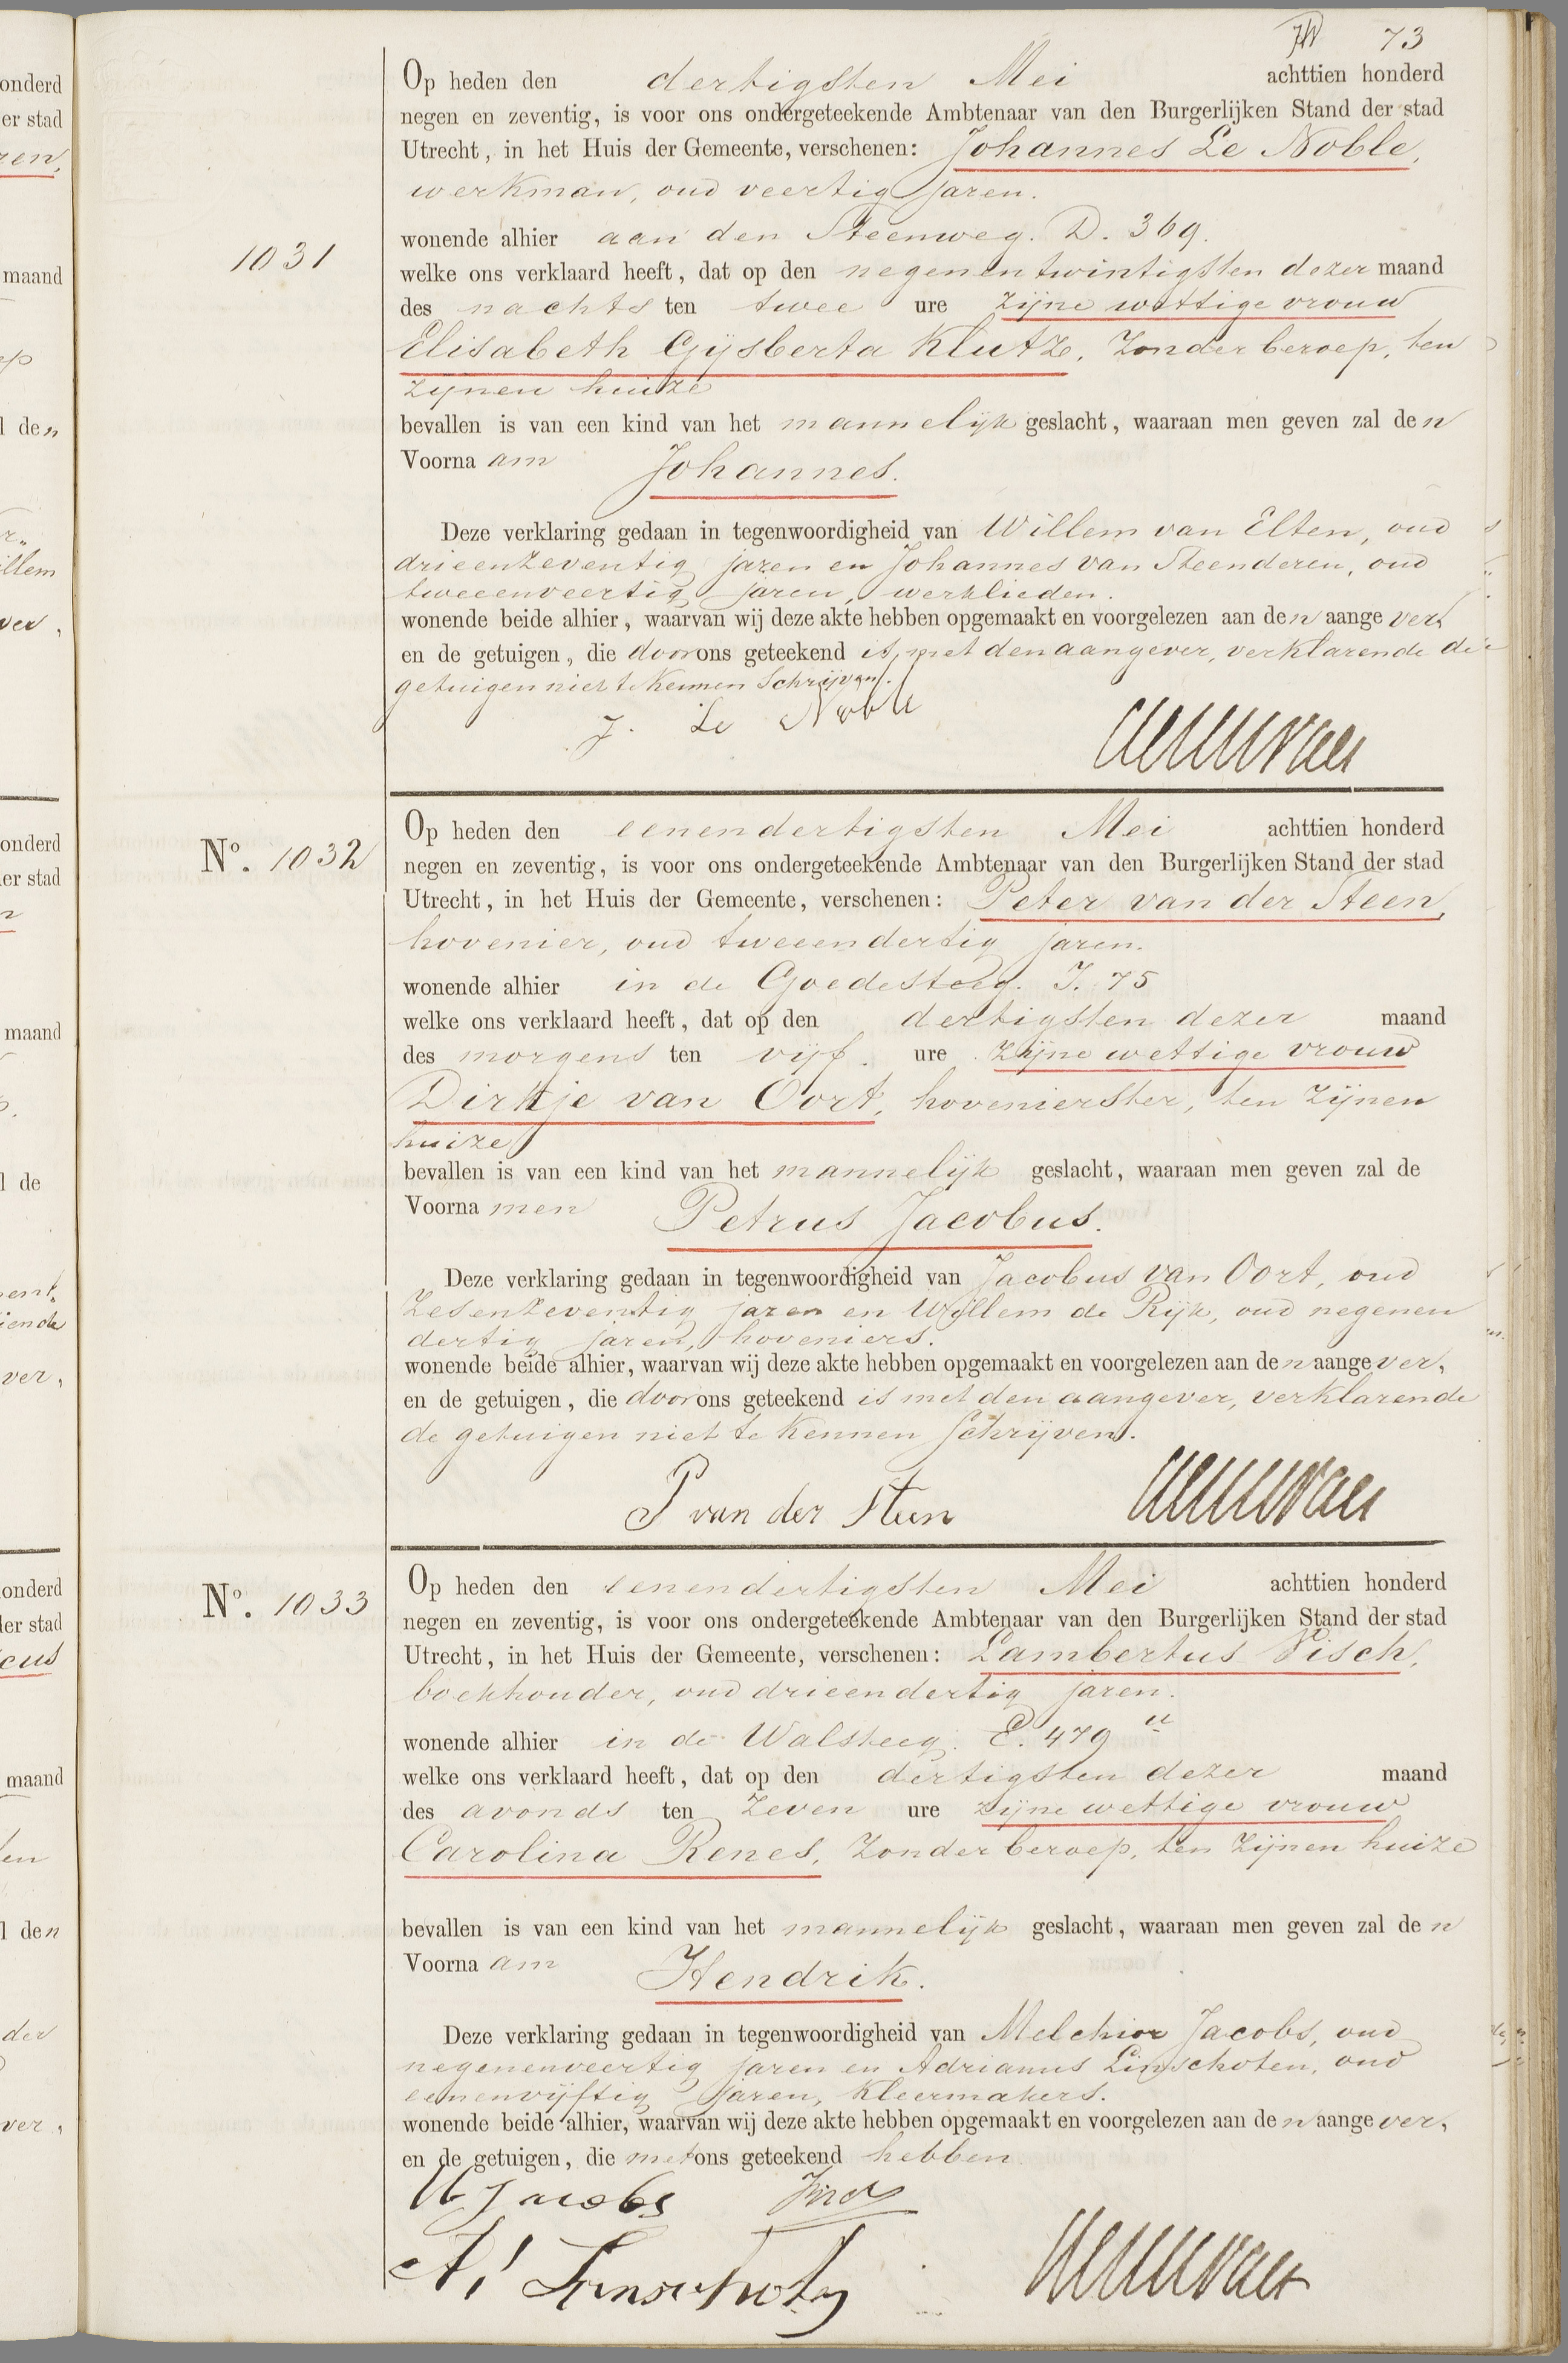 73
Op heden den dertigsten Mei achttien honderd
negen en zeventig, is voor ons ondergeteekende Ambtenaar van den Burgerlijken Stand der stad
Utrecht, in het Huis der Gemeente, verschenen: Johannes Le Noble,
werkman, oud veertig jaren.
wonende alhier aan den Steenweg. D. 369.
1031
welke ons verklaard heeft, dat op den negenentwintigsten dezer maand
des nachts ten twee ure zijne wettige vrouw
Elisabeth Gijsberta Klutz, zonder beroep, ten
zijnen huize
bevallen is van een kind van het mannelijk geslacht, waaraan men geven zal den
Voornaam Johannes.
Deze verklaring gedaan in tegenwoordigheid van Willem van Elten, oud
drieenzeventig jaren en Johannes van Steenderen, oud
tweeenveertig jaren, werklieden.
wonende beide alhier, waarvan wij deze akte hebben opgemaakt en voorgelezen aan den aangever,
en de getuigen, die door ons geteekend is, met den aangever, verklarende de
getuigen niet te kennen Schrijven.
J. Le Noble
No. 1032
Op heden den eenendertigsten Mei achttien honderd
negen en zeventig, is voor ons ondergeteekende Ambtenaar van den Burgerlijken Stand der stad
Utrecht, in het Huis der Gemeente, verschenen: Peter van der Steen,
hovenier, oud tweeendertig jaren.
wonende alhier in de Goedesteeg. I. 75
welke ons verklaard heeft, dat op den dertigsten dezer maand
des morgens ten vijf. ure zijne wettige vrouw
Dirkje van Oort, hovenierster, ten zijnen
huize
bevallen is van een kind van het mannelijk geslacht, waaraan men geven zal de
Voornamen Petrus Jacobus.
Deze verklaring gedaan in tegenwoordigheid van Jacobus van Oort, oud
zesenzeventig jaren en Willem de Rijk, oud negenen
dertig jaren, hoveniers.
wonende beide alhier, waarvan wij deze akte hebben opgemaakt en voorgelezen aan den aangever,
en de getuigen, die door ons geteekend is met den aangever, verklarende
de getuigen niet te kennen Schrijven.
P van der Steen
No. 1033
Op heden den eenendertigsten Mei achttien honderd
negen en zeventig, is voor ons ondergeteekende Ambtenaar van den Burgerlijken Stand der stad
Utrecht, in het Huis der Gemeente, verschenen: Lambertus Visch,
boekhouder, oud drieendertig jaren.
wonende alhier in de Walsteeg. E. 479 a
welke ons verklaard heeft, dat op den dertigsten dezer maand
des avonds ten zeven ure zijne wettige vrouw
Carolina Renes, zonder beroep, ten zijnen huize
bevallen is van een kind van het mannelijk geslacht, waaraan men geven zal den
Voornaam Hendrik.
Deze verklaring gedaan in tegenwoordigheid van Melchior Jacobs, oud
negenenveertig jaren en Adrianus Linschoten, oud
eenenvijftig jaren, kleermakers.
wonende beide alhier, waarvan wij deze akte hebben opgemaakt en voorgelezen aan den aangever,
en de getuigen, die met ons geteekend hebben
M Jacobs
A. Linschoten